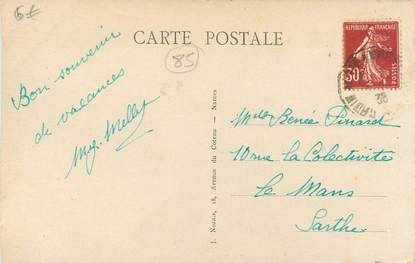 6€
CARTE POSTALE
85
Bon souvenir
de vacances
J. Nozais, 18, Avenue du Coteau - Nantes
RÉPUBLIQUE FRANÇAISE
30c
POSTES
Melle Renée Pinard
10 rue la Colectivite
Le Mans
Sarthe